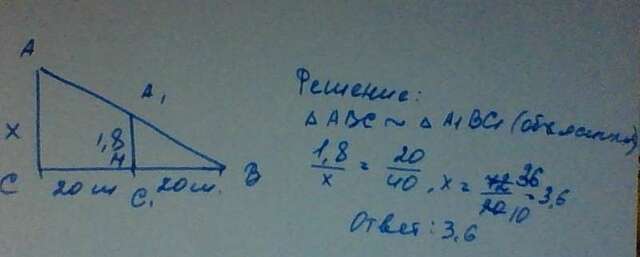 A
A₁
x
1,8
м
C
20 м
C₁
20 м.
B
Решение:
△ABC ~ △A₁BC₁ (объясните)
1,8/x = 20/40, x = 36/10 = 3,6
Ответ: 3,6